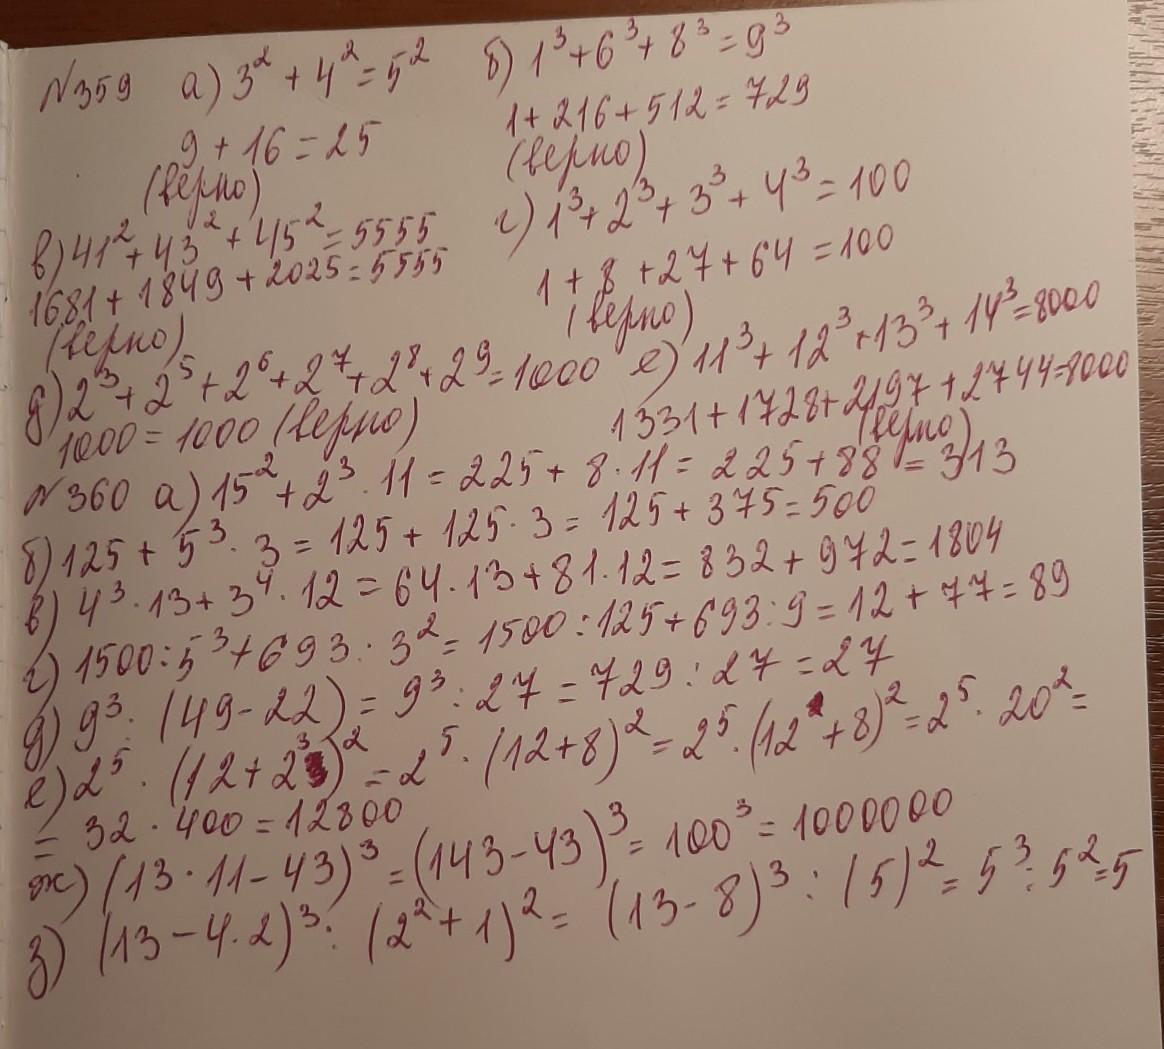 №359 а) 3² + 4² = 5² б) 1³ + 6³ + 8³ = 9³
9 + 16 = 25 1 + 216 + 512 = 729
(верно) (верно)
в) 41² + 43² + 45² = 5555 г) 1³ + 2³ + 3³ + 4³ = 100
1681 + 1849 + 2025 = 5555 1 + 8 + 27 + 64 = 100
(верно) (верно)
д) 2³ + 2⁵ + 2⁶ + 2⁷ + 2⁸ + 2⁹ = 1000 е) 11³ + 12³ + 13³ + 14³ = 8000
1000 = 1000 (верно) 1331 + 1728 + 2197 + 2744 = 8000
(верно)
№360 а) 15² + 2³ · 11 = 225 + 8 · 11 = 225 + 88 = 313
б) 125 + 5³ · 3 = 125 + 125 · 3 = 125 + 375 = 500
в) 4³ · 13 + 3⁴ · 12 = 64 · 13 + 81 · 12 = 832 + 972 = 1804
г) 1500 : 5³ + 693 : 3² = 1500 : 125 + 693 : 9 = 12 + 77 = 89
д) 9³ : (49 - 22) = 9³ : 27 = 729 : 27 = 27
е) 2⁵ · (12 + 2³)² = 2⁵ · (12 + 8)² = 2⁵ · (12 + 8)² = 2⁵ · 20² =
= 32 · 400 = 12800
ж) (13 · 11 - 43)³ = (143 - 43)³ = 100³ = 1000000
з) (13 - 4 · 2)³ : (2² + 1)² = (13 - 8)³ : (5)² = 5³ : 5² = 5